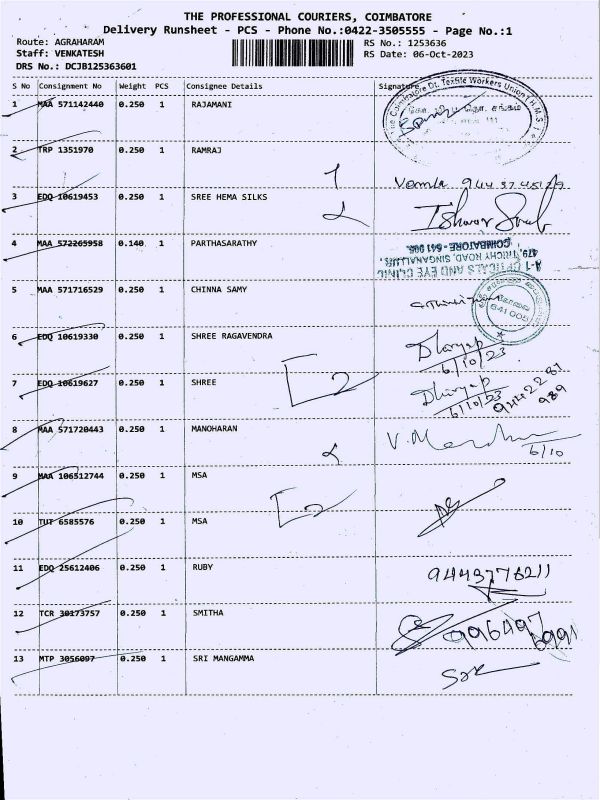 THE PROFESSIONAL COURIERS, COIMBATORE
Delivery Runsheet - PCS - Phone No.:0422-3505555 - Page No.:1
Route: AGRAHARAM RS No.: 1253636
Staff: VENKATESH RS Date: 06-Oct-2023
DRS No.: DCJB125363601
S No Consignment No Weight PCS Consignee Details Signature
1 MAA 571142440 0.250 1 RAJAMANI
The Coimbatore Dt. Textile Workers Union (H.M.S)
2 TRP 1351970 0.250 1 RAMRAJ
3 EDQ 10619453 0.250 1 SREE HEMA SILKS
4 MAA 572265958 0.140 1 PARTHASARATHY
A-1 OPTICALS AND EYE CLINIC
479, TRICHY ROAD, SINGANALLUR,
COIMBATORE - 641 005.
5 MAA 571716529 0.250 1 CHINNA SAMY
641 005
6 EDQ 10619330 0.250 1 SHREE RAGAVENDRA
6/10/23
7 EDQ 10619627 0.250 1 SHREE [2
6/10/23
8 MAA 571720443 0.250 1 MANOHARAN
6/10
9 MAA 106512744 0.250 1 MSA
10 TUT 6585576 0.250 1 MSA [2
11 EDQ 25612406 0.250 1 RUBY
12 TCR 30173757 0.250 1 SMITHA
13 MTP 3056097 0.250 1 SRI MANGAMMA